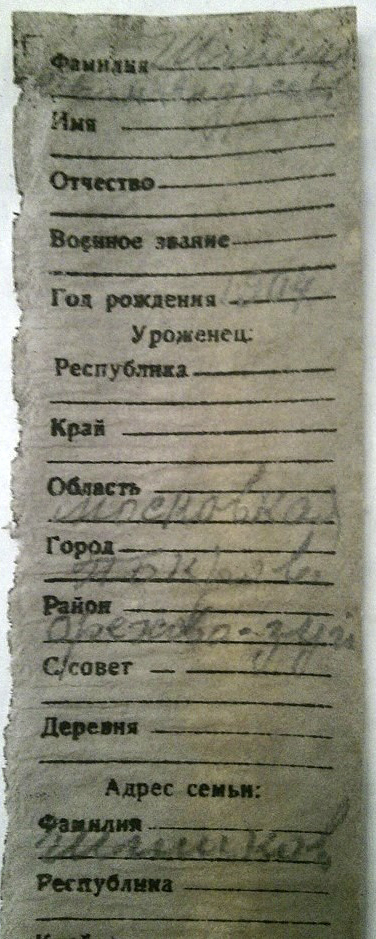 Фамилия
Имя
Отчество
Военное звание
Год рождения
Уроженец:
Республика
Край
Область
Московская
Город
Покров
Район
Орехово-зуй
С/совет
Деревня
Адрес семьи:
Фамилия
Республика